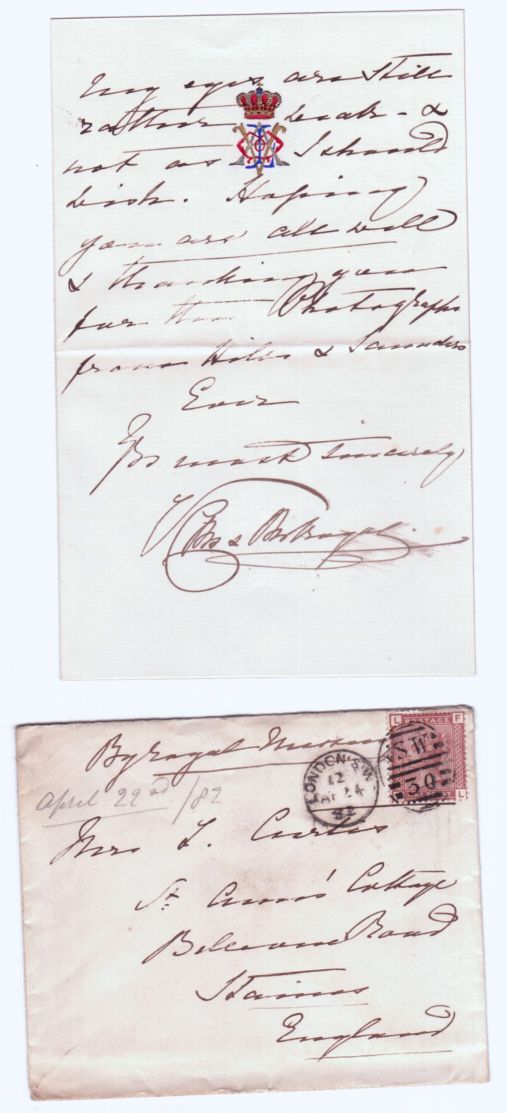 My eyes are still
rather weak - &
not as I should
wish. Hoping
you are all well
& thanking you
for the Photographs
from Hills & Saunders
Ever
Yrs most sincerely
By Royal
April 22nd /82
LONDON·S.W
12
AP 24
82
S.W.
30
L F
POSTAGE
L
Mrs T. Curtis
St Anns' Cottage
Road
Staines
England